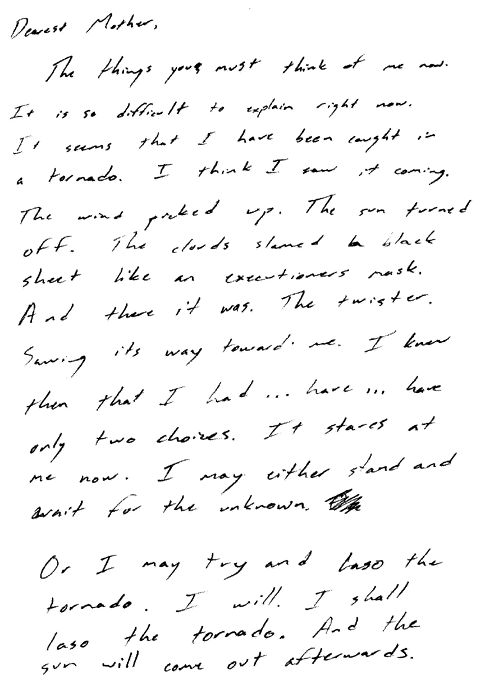 Dearest Mother,
The things you must think of me now.
It is so difficult to explain right now.
It seems that I have been caught in
a tornado. I think I saw it coming.
The wind picked up. The sun turned
off. The clouds slamed a black
sheet like an executioners mask.
And there it was. The twister.
Sawing its way toward me. I knew
then that I had ... have ... have
only two choizes. It stares at
me now. I may either stand and
await for the unknown.
Or I may try and laso the
tornado. I will. I shall
laso the tornado. And the
sun will come out afterwards.